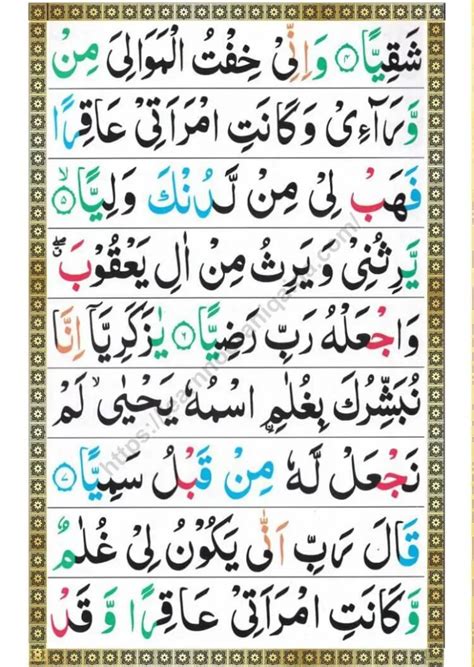 شَقِيًّا ﴿۴﴾ وَاِنِّىْ خِفْتُ الْمَوَالِىَ مِنْ
وَّرَآءِىْ وَكَانَتِ امْرَاَتِىْ عَاقِرًا
فَهَبْ لِىْ مِنْ لَّدُنْكَ وَلِيًّا ۙ﴿۵﴾
يَّرِثُنِىْ وَيَرِثُ مِنْ اٰلِ يَعْقُوْبَ ۖ
وَاجْعَلْهُ رَبِّ رَضِيًّا ﴿۶﴾ يٰزَكَرِيَّآ اِنَّا
نُبَشِّرُكَ بِغُلٰمِ اۨسْمُهٗ يَحْيٰى ۙ لَمْ
نَجْعَلْ لَّهٗ مِنْ قَبْلُ سَمِيًّا ﴿۷﴾
قَالَ رَبِّ اَنّٰى يَكُوْنُ لِىْ غُلٰمٌ
وَّكَانَتِ امْرَاَتِىْ عَاقِرًا وَّقَدْ